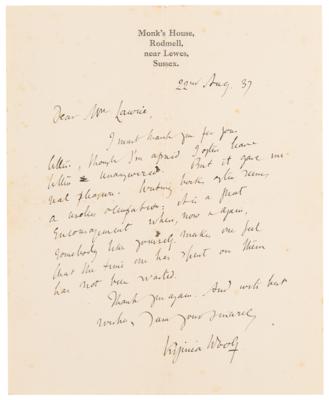 Monk's House,
Rodmell,
near Lewes,
Sussex.
22nd Aug. 37
Dear Mr Lawrie,
I must thank you for your
letter, though I'm afraid I often leave
letters unanswered. But it gave me
great pleasure. Writing books often seems
a useless occupation; it is a great
encouragement when, now & again,
somebody like yourself makes one feel
that the time one has spent on them
has not been wasted.
Thank you again. And with best
wishes, I am yours sincerely
Virginia Woolf